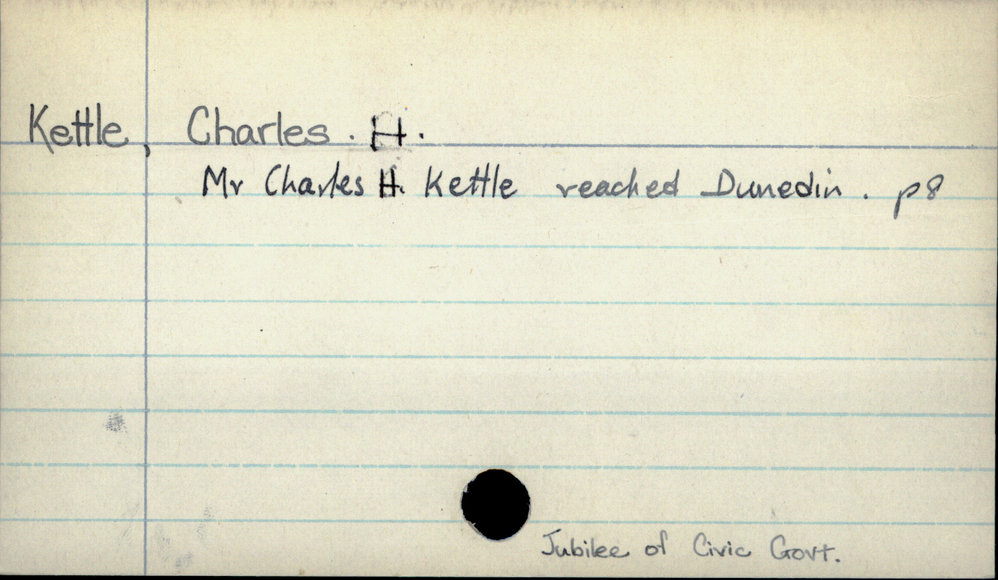 Kettle, Charles. H.
Mr Charles H. Kettle reached Dunedin. p8
Jubilee of Civic Govt.